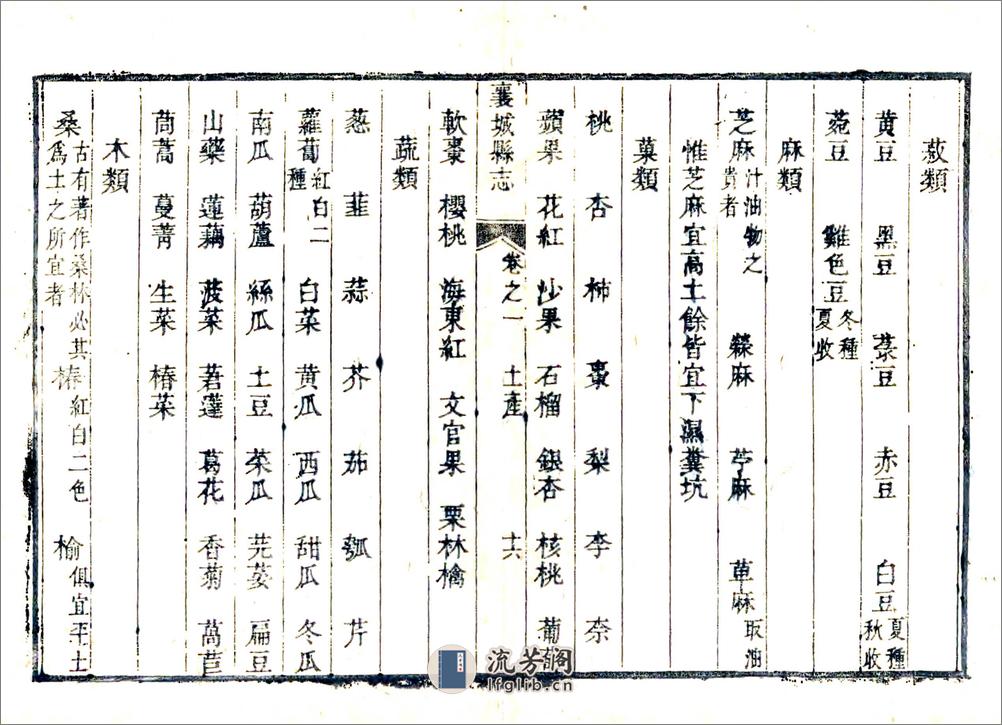 菽類
黄豆 黑豆 菉豆 赤豆 白豆 夏種秋收
菀豆 雜色豆 冬種夏收
麻類
芝麻 汁油物之貴者 檾麻 苧麻 草麻 取油
惟芝麻宜高土餘皆宜下濕糞坑
菓類
桃 杏 柿 棗 梨 李 柰
蘋果 花紅 沙果 石榴 銀杏 核桃 葡
襄城縣志 卷之一 土產 十六
軟棗 櫻桃 海東紅 文官果 栗 林檎
蔬類
葱 韮 蒜 芥 茄 瓠 芹
蘿蔔 紅白二種 白菜 黄瓜 西瓜 甜瓜 冬瓜
南瓜 葫蘆 絲瓜 土豆 菜瓜 芫荽 扁豆
山藥 蓮藕 菠菜 莙薘 葛花 香菊 萵苣
茼蒿 蔓菁 生菜 椿菜
木類
桑 古有著作桑林必其爲土之所宜者 椿 紅白二色 榆 俱宜平土
流芳阁
lfglib.cn